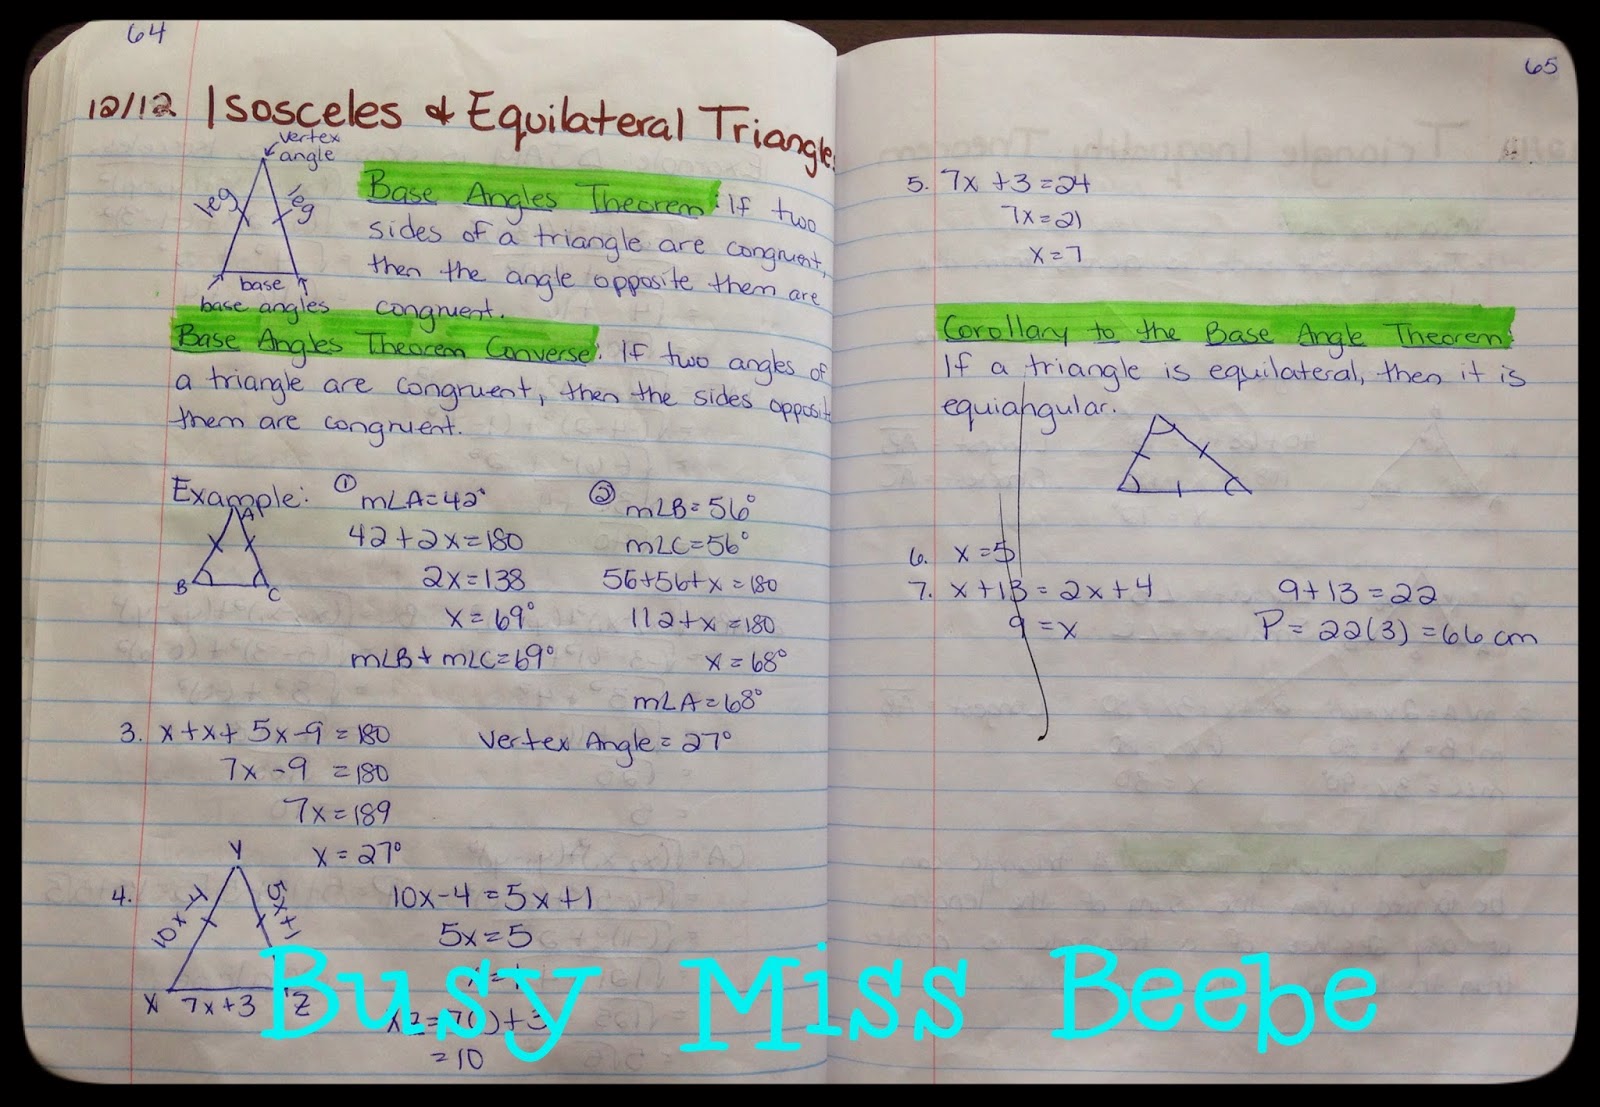 64
12/12 Isosceles & Equilateral Triangle
vertex
angle
leg
leg
base
base angles
Base Angles Theorem: If two
sides of a triangle are congruent,
then the angle opposite them are
congruent.
Base Angles Theorem Converse: If two angles of
a triangle are congruent, then the sides opposit
them are congruent.
Example:
A
B
C
① m∠A=42°
42+2x=180
2x=138
x=69°
m∠B+m∠C=69°
② m∠B=56°
m∠C=56°
56+56+x=180
112+x=180
x=68°
m∠A=68°
3. x+x+5x-9=180
7x-9=180
7x=189
x=27°
Vertex Angle=27°
4.
Y
10x-4
5x+1
X 7x+3 Z
10x-4=5x+1
5x=5
x=1
XZ=7(1)+3
=10
65
5. 7x+3=24
7x=21
x=7
Corollary to the Base Angle Theorem:
If a triangle is equilateral, then it is
equiangular.
6. x=5
7. x+13=2x+4
9=x
9+13=22
P=22(3)=66cm
Busy Miss Beebe